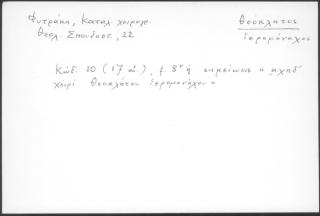 Φυτράκη, Καταλ. χειρογρ.
Θεολ. Σπουδαστ., 22
Θεόκλητος
ἱερομόναχος
Κώδ. 10 (17 αἰ.), f. 8ᵛ ἡ σημείωσις « αχπδ´
χειρί Θεοκλήτου ἱερομονάχου »